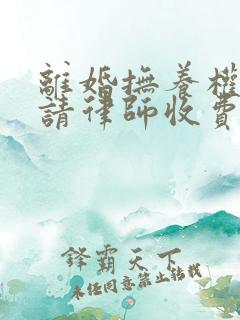 離婚撫養權
請律師收費
鋒霸天下
未经同意禁止转载